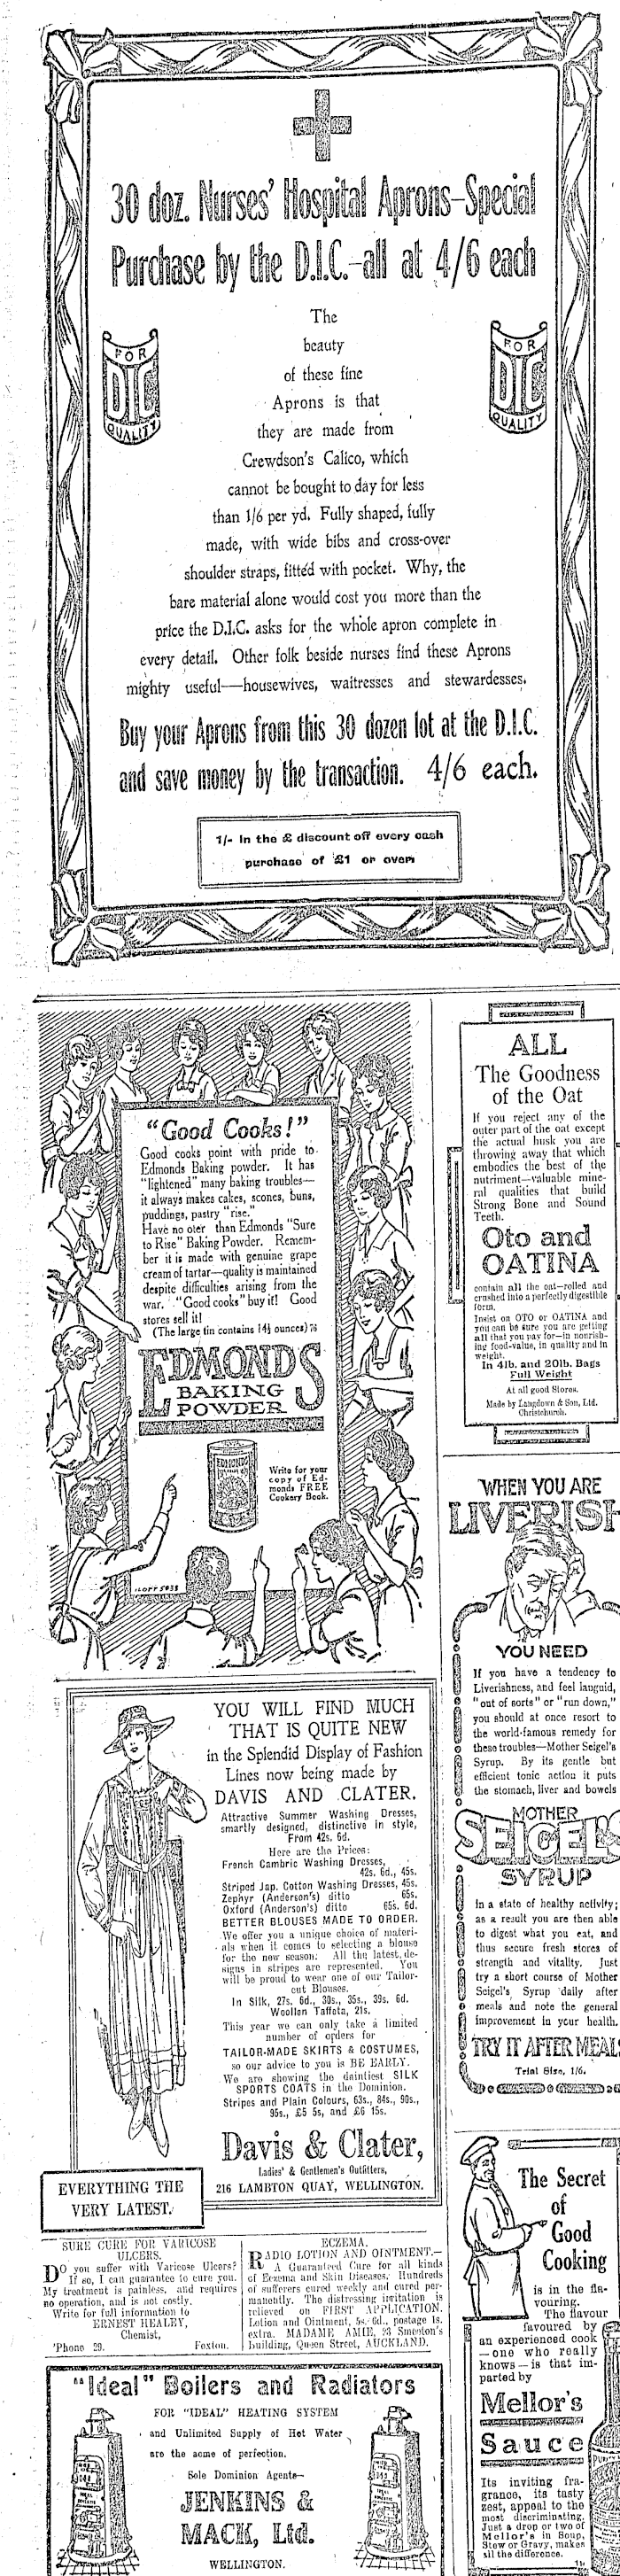 30 doz. Nurses' Hospital Aprons-Special
Purchase by the D.I.C.-all at 4/6 each
FOR
DIC
QUALITY
FOR
DIC
QUALITY
The
beauty
of these fine
Aprons is that
they are made from
Crewdson's Calico, which
cannot be bought to day for less
than 1/6 per yd. Fully shaped, fully
made, with wide bibs and cross-over
shoulder straps, fitted with pocket. Why, the
bare material alone would cost you more than the
price the D.I.C. asks for the whole apron complete in
every detail. Other folk beside nurses find these Aprons
mighty useful—housewives, waitresses and stewardesses.
Buy your Aprons from this 30 dozen lot at the D.I.C.
and save money by the transaction. 4/6 each.
1/- in the £ discount off every cash
purchase of £1 or over.
"Good Cooks!"
Good cooks point with pride to
Edmonds Baking powder. It has
"lightened" many baking troubles—
it always makes cakes, scones, buns,
puddings, pastry "rise."
Have no oter than Edmonds "Sure
to Rise" Baking Powder. Remem-
ber it is made with genuine grape
cream of tartar—quality is maintained
despite difficulties arising from the
war. "Good cooks" buy it! Good
stores sell it!
(The large tin contains 14½ ounces) 76
EDMONDS
BAKING
POWDER
EDMONDS
Write for your
copy of Ed-
monds FREE
Cookery Book.
ALL
The Goodness
of the Oat
If you reject any of the
outer part of the oat except
the actual husk you are
throwing away that which
embodies the best of the
nutriment—valuable mine-
ral qualities that build
Strong Bone and Sound
Teeth.
Oto and
OATINA
contain all the oat—rolled and
crushed into a perfectly digestible
form.
Insist on OTO or OATINA and
you can be sure you are getting
all that you pay for—in nourish-
ing food-value, in quality and in
weight.
In 4lb. and 20lb. Bags
Full Weight
At all good Stores.
Made by Langdown & Son, Ltd.
Christchurch.
WHEN YOU ARE
LIVERISH
YOU NEED
If you have a tendency to
Liverishness, and feel languid,
"out of sorts" or "run down,"
you should at once resort to
the world-famous remedy for
these troubles—Mother Seigel's
Syrup. By its gentle but
efficient tonic action it puts
the stomach, liver and bowels
MOTHER
SEIGEL'S
SYRUP
in a state of healthy activity;
as a result you are then able
to digest what you eat, and
thus secure fresh stores of
strength and vitality. Just
try a short course of Mother
Seigel's Syrup daily after
meals and note the general
improvement in your health.
TRY IT AFTER MEALS
Trial Size, 1/6.
YOU WILL FIND MUCH
THAT IS QUITE NEW
in the Splendid Display of Fashion
Lines now being made by
DAVIS AND CLATER.
Attractive Summer Washing Dresses,
smartly designed, distinctive in style,
From 42s. 6d.
Here are the Prices:
French Cambric Washing Dresses,
42s. 6d., 45s.
Striped Jap. Cotton Washing Dresses, 45s.
Zephyr (Anderson's) ditto 65s.
Oxford (Anderson's) ditto 65s. 6d.
BETTER BLOUSES MADE TO ORDER.
We offer you a unique choice of materi-
als when it comes to selecting a blouse
for the new season. All the latest de-
signs in stripes are represented. You
will be proud to wear one of our Tailor-
cut Blouses.
In Silk, 27s. 6d., 30s., 35s., 39s. 6d.
Woollen Taffeta, 21s.
This year we can only take a limited
number of orders for
TAILOR-MADE SKIRTS & COSTUMES,
so our advice to you is BE EARLY.
We are showing the daintiest SILK
SPORTS COATS in the Dominion.
Stripes and Plain Colours, 63s., 84s., 90s.,
95s., £5 5s, and £6 15s.
Davis & Clater,
Ladies' & Gentlemen's Outfitters,
216 LAMBTON QUAY, WELLINGTON.
EVERYTHING THE
VERY LATEST.
SURE CURE FOR VARICOSE
ULCERS.
DO you suffer with Varicose Ulcers?
If so, I can guarantee to cure you.
My treatment is painless, and requires
no operation, and is not costly.
Write for full information to
ERNEST HEALEY,
Chemist,
'Phone 29. Foxton.
ECZEMA.
RADIO LOTION AND OINTMENT.—
A Guaranteed Cure for all kinds
of Eczema and Skin Diseases. Hundreds
of sufferers cured weekly and cured per-
manently. The distressing irritation is
relieved on FIRST APPLICATION.
Lotion and Ointment, 5s. 6d., postage 1s.
extra. MADAME AMIE, 23 Smeeton's
Building, Queen Street, AUCKLAND.
"Ideal" Boilers and Radiators
FOR "IDEAL" HEATING SYSTEM
and Unlimited Supply of Hot Water
are the acme of perfection.
Sole Dominion Agents—
JENKINS &
MACK, Ltd.
WELLINGTON.
The Secret
of
Good
Cooking
is in the fla-
vouring.
The flavour
favoured by
an experienced cook
—one who really
knows—is that im-
parted by
Mellor's
Sauce
Its inviting fra-
grance, its tasty
zest, appeal to the
most discriminating.
Just a drop or two of
Mellor's in Soup,
Stew or Gravy, makes
all the difference.